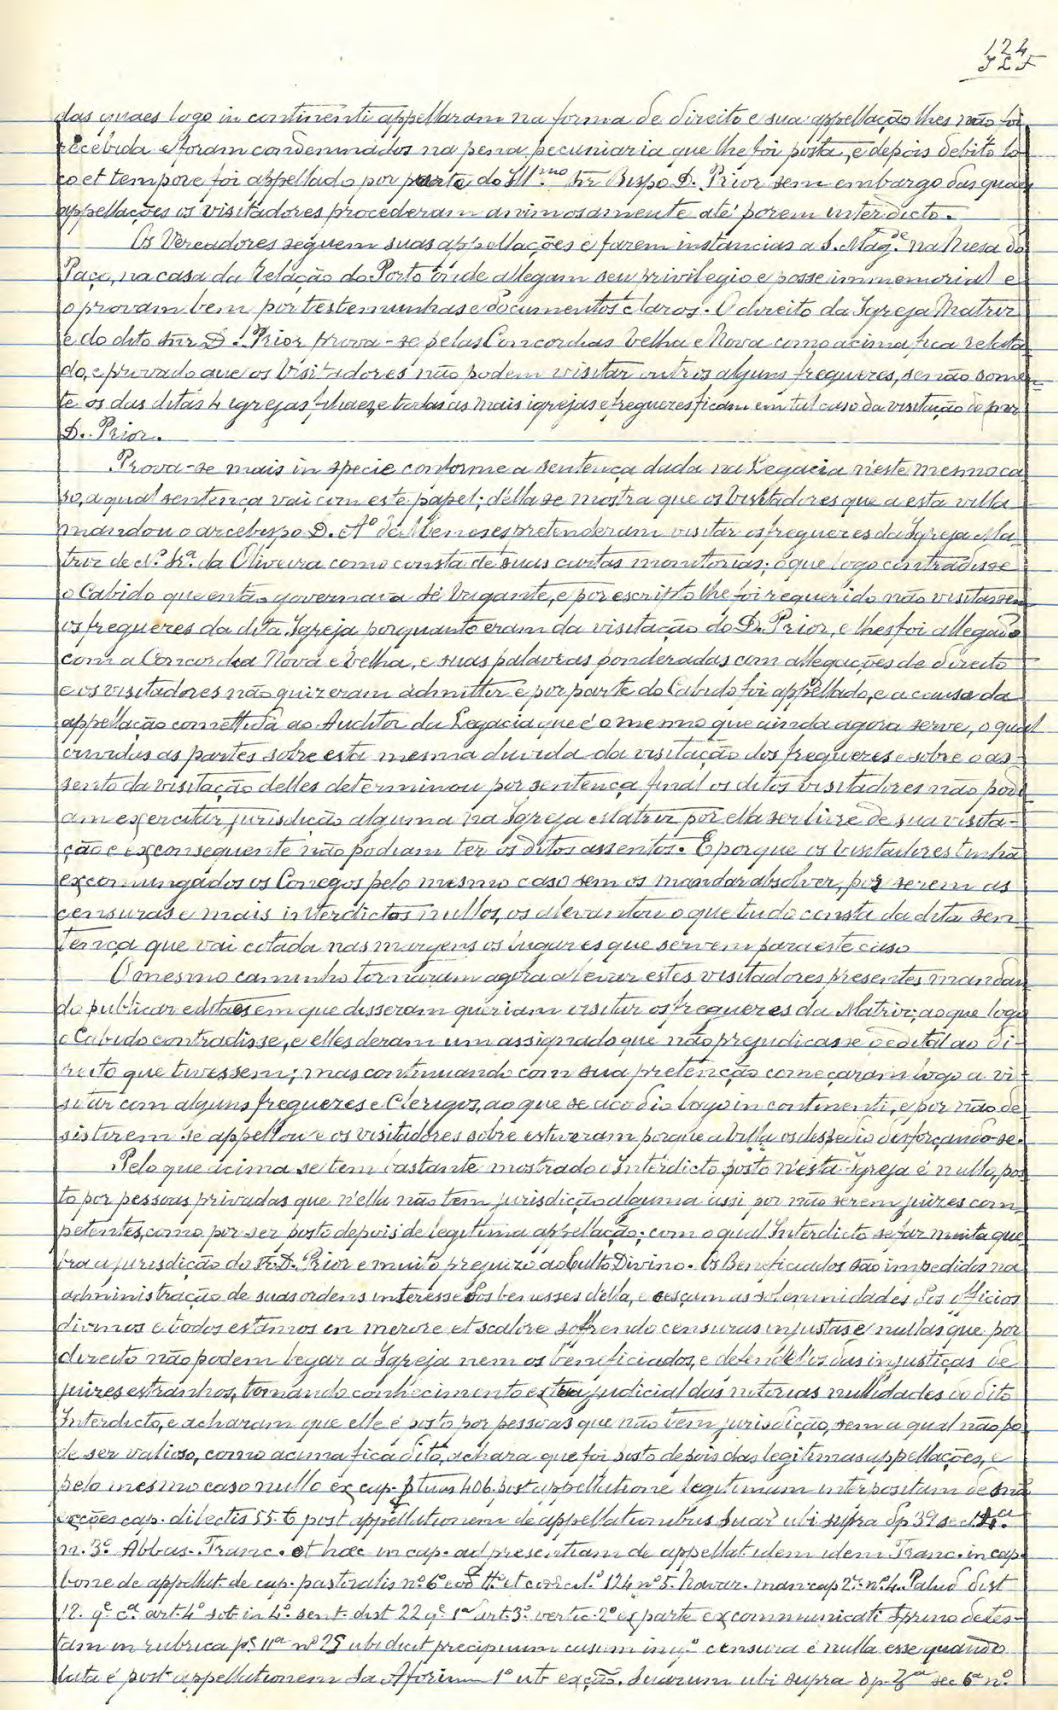 124
das quaes logo in continenti appellaram na forma de direito e sua appellação lhes não foi
recebida e foram condemnados na pena pecuniaria que lhe foi posta, e depois debito lo-
co et tempore foi appellado por parte do Ill.mo Snr Bispo D. Prior sem embargo das quaes
appellações os visitadores procederam animosamente até porem interdicto.
Os Vereadores seguem suas appellações e fazem instancias a S. Mag.de na Mesa do
Paço, na casa da Relação do Porto onde allegam seu privilegio e posse immemorial e
o provam bem por testemunhas e documentos claros. O direito da Igreja Matriz
e do dito Snr D. Prior prova-se pelas Concordias Velha e Nova como acima fica relata-
do, e provado que os Visitadores não podem visitar outros alguns freguezes, senão somen-
te os das ditas 4 igrejas filiaes, e todas as mais igrejas e freguezes ficam em tal caso da visitação do snr
D. Prior.
Prova-se mais in specie conforme a sentença dada na Legacia n'este mesmo ca-
so, a qual sentença vai com este papel; d'ella se mostra que os Visitadores que a esta villa
mandou o arcebispo D. A.o de Menezes pretenderam visitar os freguezes da Igreja Ma-
triz de N.a Sr.a da Oliveira como consta de suas cartas monitorias; o que logo contradisse
o Cabido que então governava Sé Vagante, e por escripto lhe foi requerido não visitassem
os freguezes da dita Igreja porquanto eram da visitação do D. Prior, e lhes foi allegado
com a Concordia Nova e Velha, e suas palavras ponderadas com allegações de direito
e os visitadores não quizeram admittir e por parte do Cabido foi appellado, e a causa da
appellação comettida ao Auditor da Legacia que é o mesmo que ainda agora serve, o qual
ouvidas as partes sobre esta mesma duvida da visitação dos freguezes e sobre o as-
sento da visitação delles determinou por sentença final os ditos visitadores não podi-
am exercitar jurisdicção alguma na Igreja Matriz por ella ser livre de sua visita-
ção e exconsequente não podiam ter os ditos assentos. E porque os Visitadores tinhã
excomungados os Conegos pelo mesmo caso sem os mandar absolver, por serem as
censuras e mais interdictos nullos, os alevantou o que tudo consta da dita sen-
tença que vai cotada nas margens os lugares que servem para este caso
O mesmo caminho tornaram agora a levar estes visitadores presentes mandan-
do publicar editaes em que disseram queriam visitar os freguezes da Matriz; ao que logo
o Cabido contradisse, e elles deram um assignado que não prejudicasse o edital ao di-
reito que tivessem; mas continuando com sua pretenção começaram logo a vi-
sitar com alguns freguezes e Clerigos, ao que se acodio logo in continenti, e por não de-
sistirem se appellou e os visitadores sobre estiveram porque a villa os despedio desforçando-se.
Pelo que acima se tem bastante mostrado o Interdicto posto n'esta Igreja é nullo, pos-
to por pessoas privadas que n'ella não tem jurisdicção alguma assi por não serem juizes com-
petentes, como por ser posto depois de legitima appellação; com o qual Interdicto se faz muita que-
bra a jurisdição do Sr D. Prior e muito prejuizo ao Culto Divino. Os Beneficiados são impedidos na
administração de suas ordens interesse dos benesses della, e cessam as solemnidades dos officios
divinos e todos estamos en merore et scalore soffrendo censuras injustas e nullas que por
direito não podem legar a Igreja nem os beneficiados, e defendel'os das injustiças de
juizes estranhos, tomando conhecimento extra judicial das notorias nullidades do dito
Interdicto, e acharam que elle é posto por pessoas que não tem jurisdição, sem a qual não po-
de ser valioso, como acima fica dito, achara que foi posto depois das legitimas appellações, e
pelo mesmo caso nullo ex cap. 406, post appellatione legitimam interpositam
cap. dilectis 55. 6 post appellationem de appellationibus Suar ubi supra Dp 39 sec
n. 3.o Abbas. Franc. et hoc in cap. ad presentiam de appellat. idem idem Franc. in cap.
bone de appellat. de cap. pastoralis n.o 6.o et consul.o 124 n.o 5. Navar. man cap 2 n.o 4. Palud dist
12. q. c.a art. 4.o sot. in 4.o sent. dist 22 q.e 1.a art. 3.o vertic 2.o ex parte excommunicati
tam in rubrica 11.a n.o 25 ubi dicit precipuum casum in q.o censura é nulla esse quando
lata é post appellationem 1.o ub exção. Suarum ubi supra dp. 3.a sec 6.a n.o